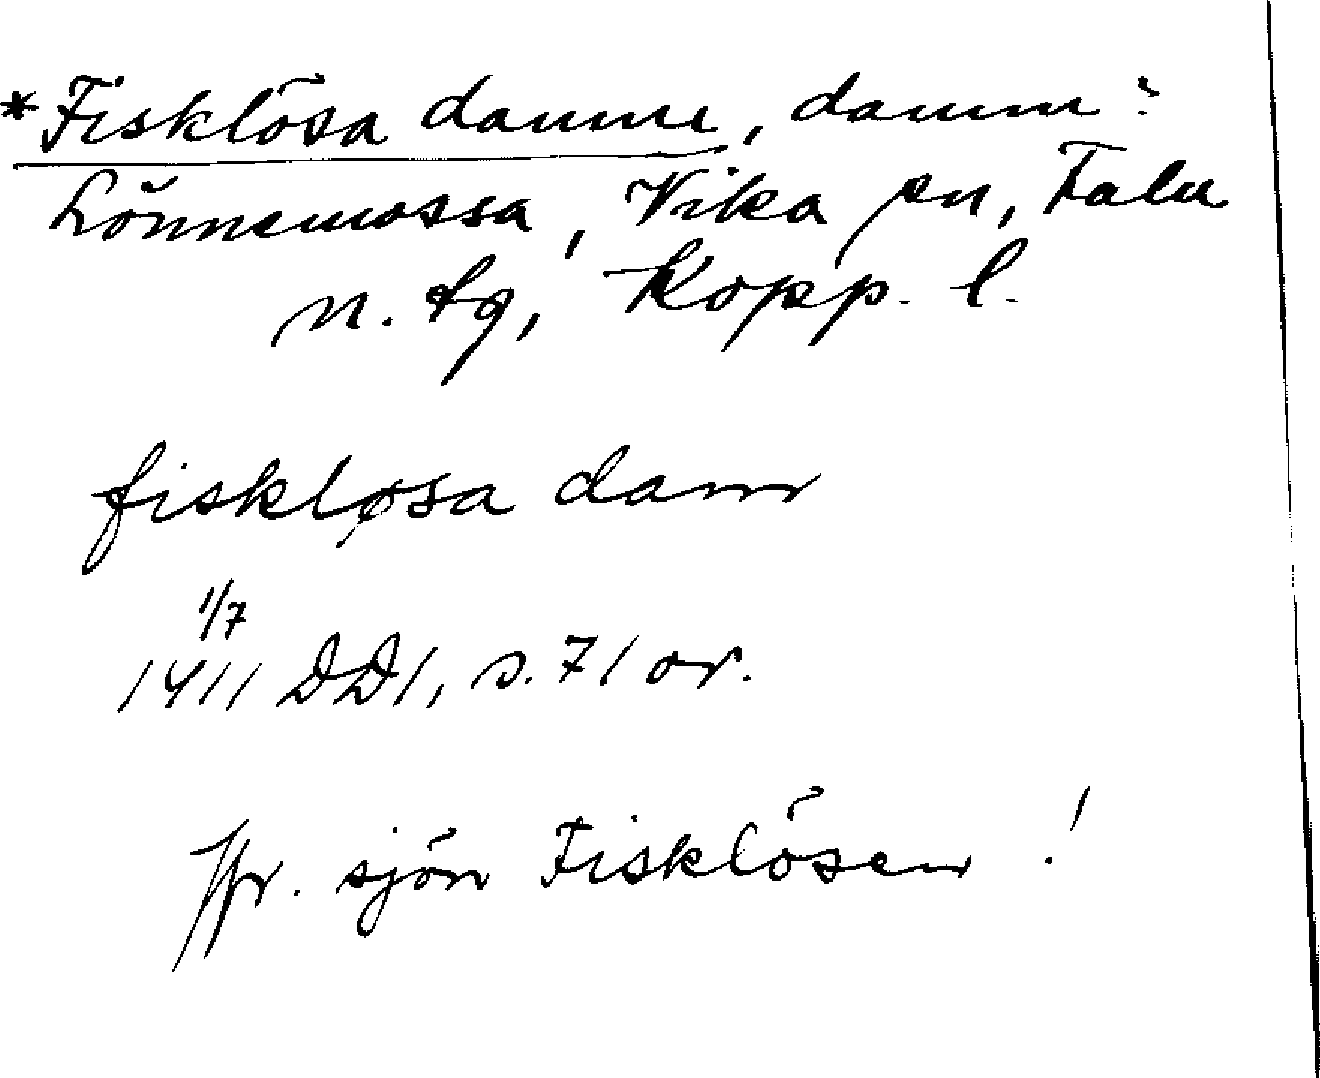 *Fisklösa damm, damm i
Lönnemossa, Vika sn, Falu
n. tg, Kopp. l.
fiskløsa dam
1/7
1411 DD1, s. 71 or.
Jfr. sjön Fisklösen !